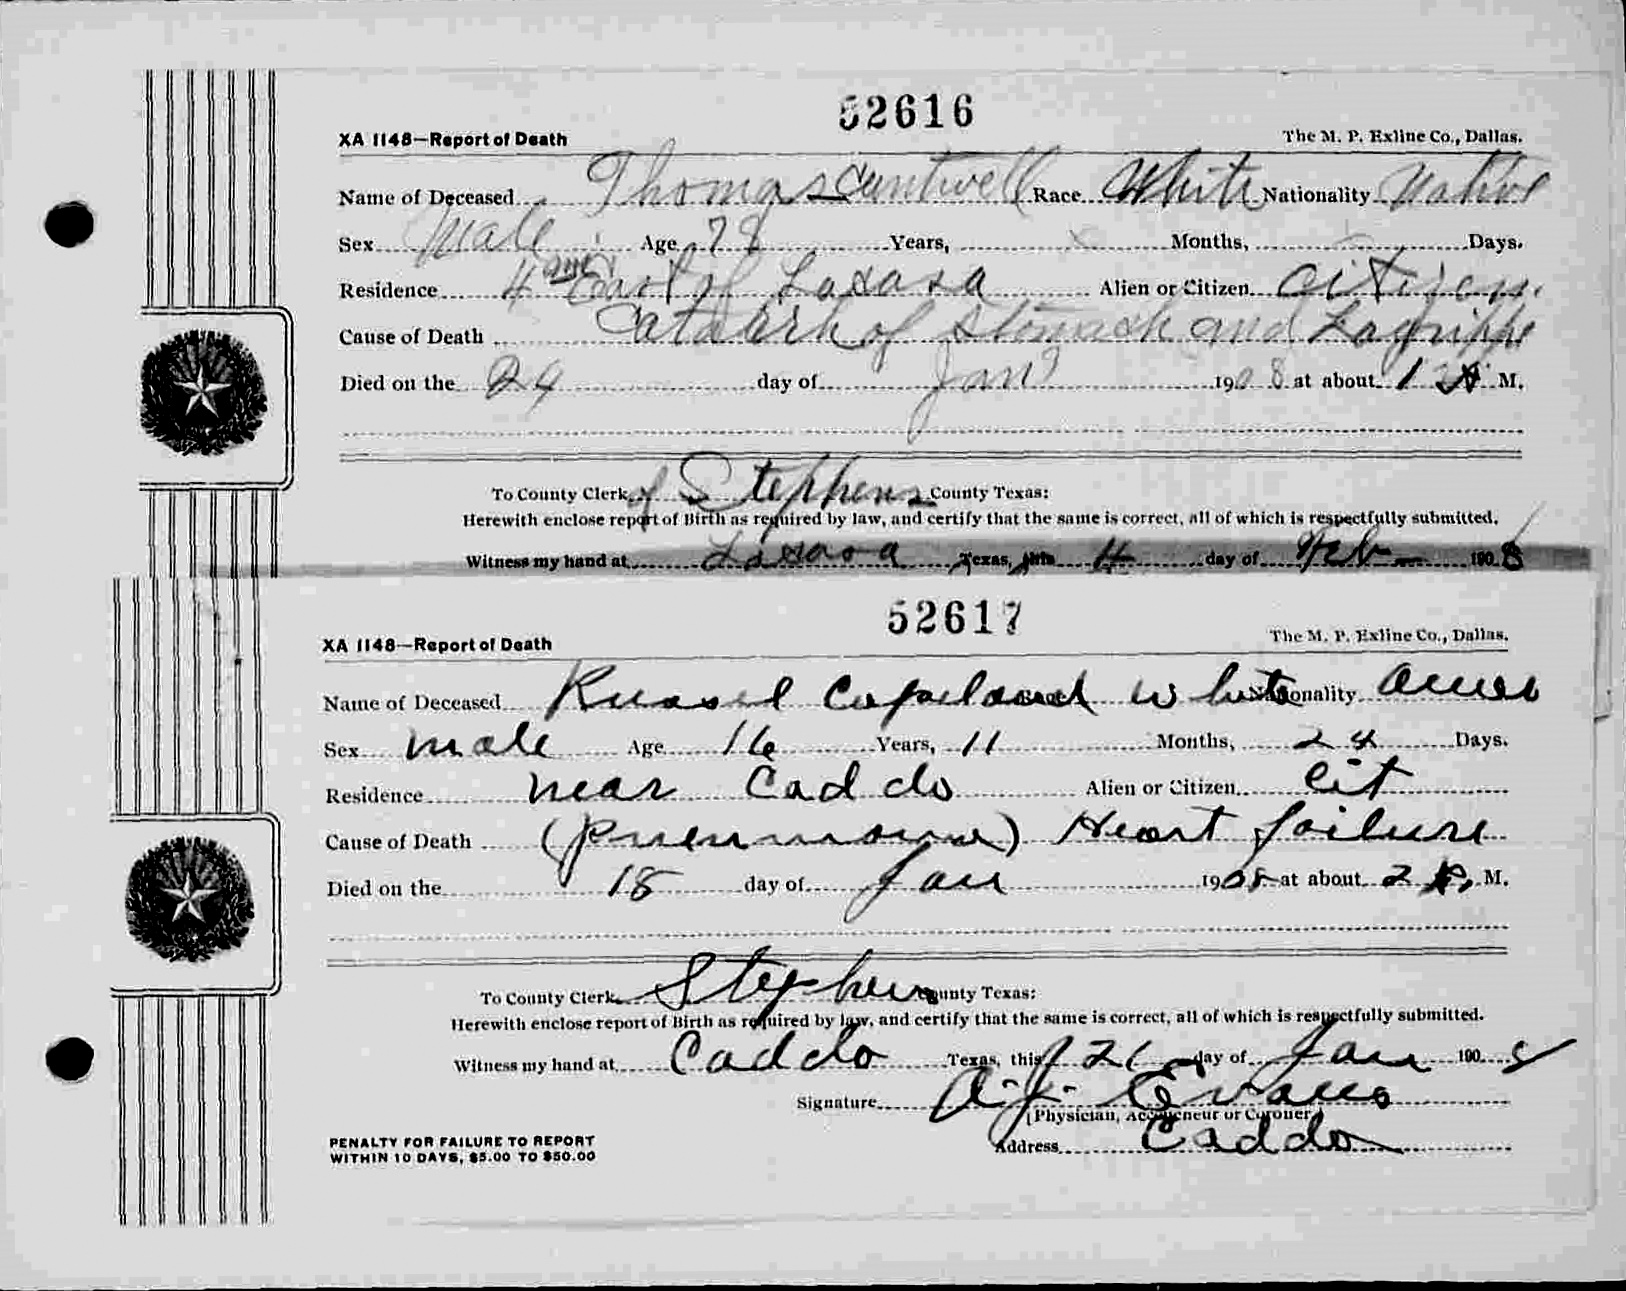 52616
XA 1148—Report of Death The M. P. Exline Co., Dallas.
Name of Deceased Thomas Cantwell Race White Nationality Native
Sex Male Age 78 Years, x Months, Days.
Residence 4 East of Laxasa Alien or Citizen Citizen
Cause of Death Catarrh of Stomach and Lagrippe
Died on the 24 day of Jan 1908 at about 1 A M.
To County Clerk of Stephens County Texas:
Herewith enclose report of Birth as required by law, and certify that the same is correct, all of which is respectfully submitted.
Witness my hand at Laxasa Texas, this 4 day of Feb 1908
52617
XA 1148—Report of Death The M. P. Exline Co., Dallas.
Name of Deceased Russel Copeland White Nationality Amer
Sex male Age 16 Years, 11 Months, 24 Days.
Residence near Caddo Alien or Citizen Cit
Cause of Death (pneumonia) Heart failure
Died on the 18 day of Jan 1908 at about 2 P. M.
To County Clerk Stephens County Texas:
Herewith enclose report of Birth as required by law, and certify that the same is correct, all of which is respectfully submitted.
Witness my hand at Caddo Texas, this 21 day of Jan 1908
Signature A. J. Evans
(Physician, Accoucneur or Coroner)
Address Caddo
PENALTY FOR FAILURE TO REPORT
WITHIN 10 DAYS, $5.00 TO $50.00